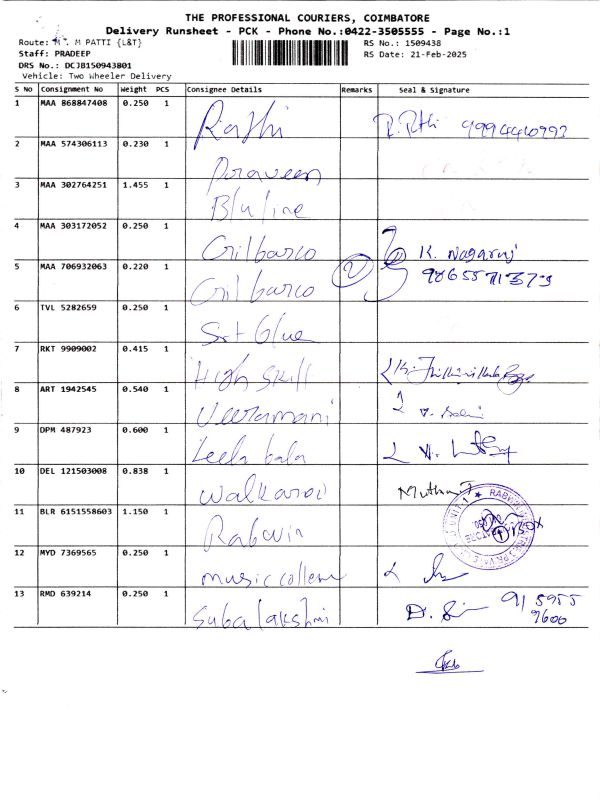 THE PROFESSIONAL COURIERS, COIMBATORE
Delivery Runsheet - PCK - Phone No.:0422-3505555 - Page No.:1
Route: M. M PATTI {L&T}
RS No.: 1509438
Staff: PRADEEP
RS Date: 21-Feb-2025
DRS No.: DCJB150943801
Vehicle: Two Wheeler Delivery
S No Consignment No Weight PCS Consignee Details Remarks Seal & Signature
1 MAA 868847408 0.250 1 Rathi R. Rthi 9994440992
2 MAA 574306113 0.230 1 Praveen
3 MAA 302764251 1.455 1 Bluline
4 MAA 303172052 0.250 1 Gilbarco K. Nagaraj
5 MAA 706932063 0.220 1 Gilbarco 2 9865571373
6 TVL 5282659 0.250 1 Srt Glue
7 RKT 9909002 0.415 1 High Skill
8 ART 1942545 0.540 1 Veeramani
9 DPM 487923 0.600 1 Leela bala
10 DEL 121503008 0.838 1 walkaroo
11 BLR 6151558603 1.150 1 Rabwin
12 MYD 7369565 0.250 1 music college
13 RMD 639214 0.250 1 Suba lakshmi 91 5955
9600